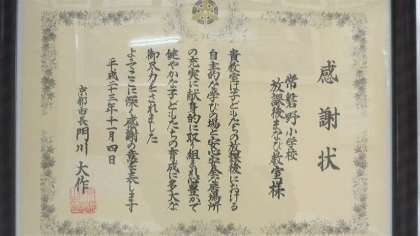 感謝状
常磐野小学校
放課後まなび教室様
貴教室は子どもたちの放課後における
自主的な学びの場と安心安全な居場所
の充実に献身的に取り組まれ心豊かで
健やかな子どもたちの育成に多大な
御尽力をされました
よってここに深く感謝の意を表します
平成二十三年十一月四日
京都市長 門川 大作